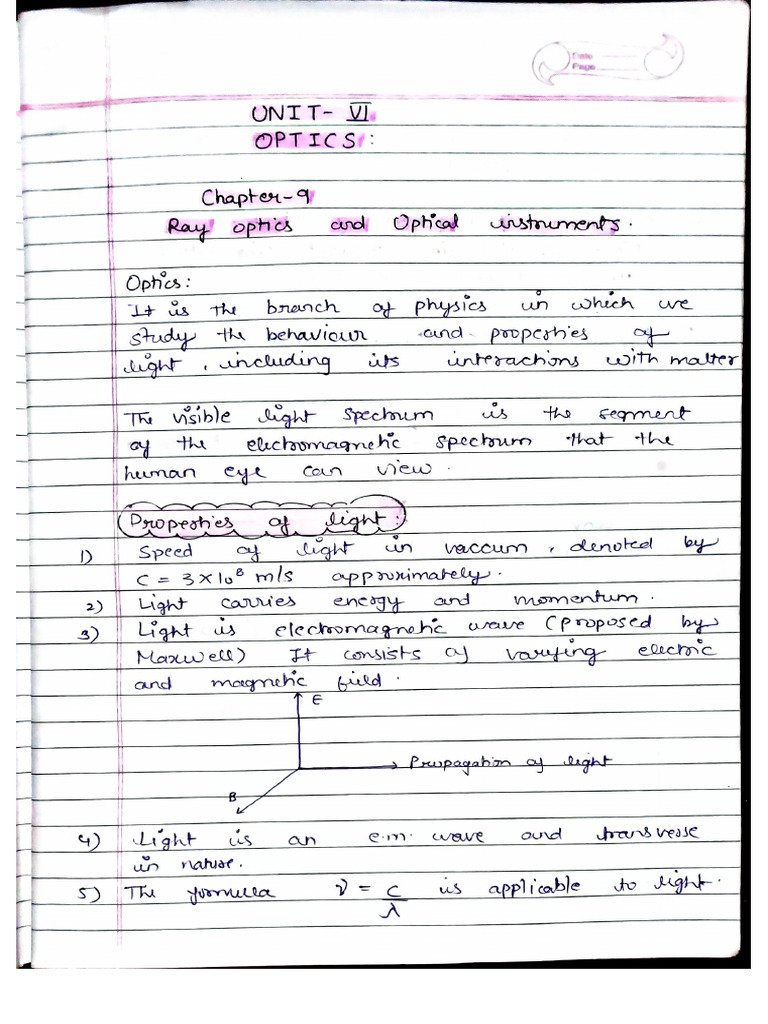 Date
Page
UNIT- VI
OPTICS:
Chapter-9
Ray optics and Optical instruments.
Optics:
It is the branch of physics in which we
study the behaviour and properties of
light, including its interactions with matter
The visible light spectrum is the segment
of the electromagnetic spectrum that the
human eye can view.
Properties of light:
1) Speed of light in vaccum, denoted by
C = 3×10⁸ m/s approximately.
2) Light carries energy and momentum.
3) Light is electromagnetic wave (proposed by
Maxwell) It consists of varying electric
and magnetic field.
E
Propagation of light
B
4) Light is an e.m. wave and transverse
in nature.
5) The formula ν = c/λ is applicable to light.